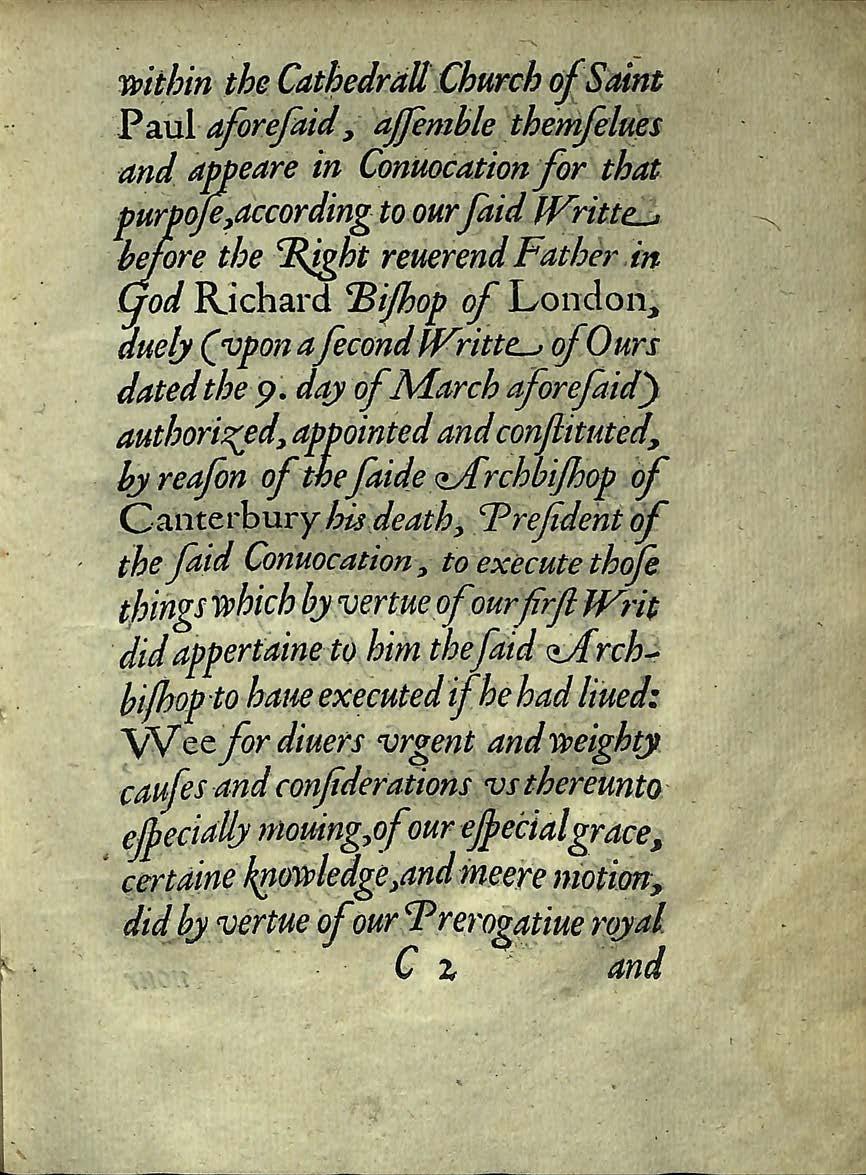 within the Cathedrall Church of Saint
Paul aforeſaid, aſſemble themſelues
and appeare in Conuocation for that
purpoſe,according to our ſaid Writte
before the Right reuerend Father in
God Richard Biſhop of London,
duely (vpon a ſecond Writte of Ours
dated the 9. day of March aforeſaid)
authorized, appointed and conſtituted,
by reaſon of the ſaide Archbiſhop of
Canterbury his death, Preſident of
the ſaid Conuocation, to execute thoſe
things which by vertue of our firſt Writ
did appertaine to him the ſaid Arch-
biſhop to haue executed if he had liued:
VVee for diuers vrgent and weighty
cauſes and conſiderations vs thereunto
eſpecially mouing,of our eſpecial grace,
certaine knowledge,and meere motion,
did by vertue of our Prerogatiue royal
C 2 and